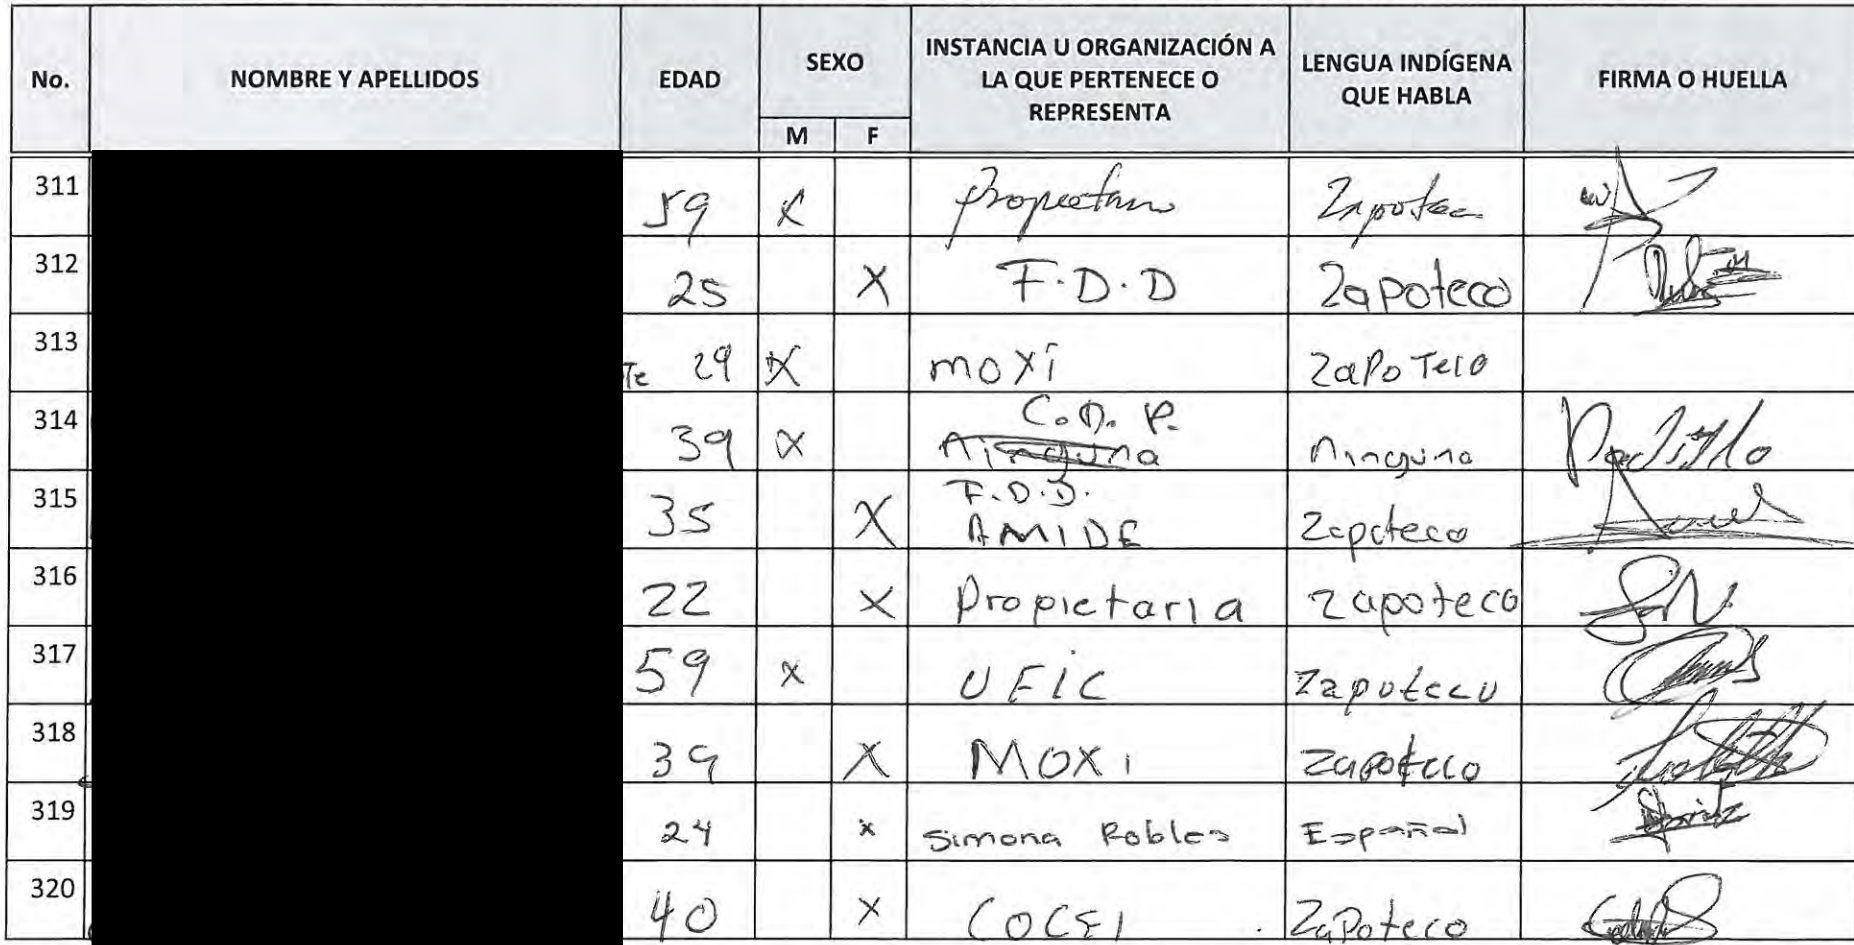 No. NOMBRE Y APELLIDOS EDAD SEXO M F INSTANCIA U ORGANIZACIÓN A LA QUE PERTENECE O REPRESENTA LENGUA INDÍGENA QUE HABLA FIRMA O HUELLA
311 59 X Zapoteco
312 25 X F.D.D Zapoteco
313 Te 29 X moxi ZapoTeco
314 39 X C.D.P. Ninguna Ninguna
315 35 X F.D.D. AMIDE Zapoteco
316 22 X Propietaria zapoteco
317 59 x UFIC Zapoteco
318 39 X MOXi zapoteco
319 24 x Simona Robles Español
320 40 X COCEI ZaPoteco